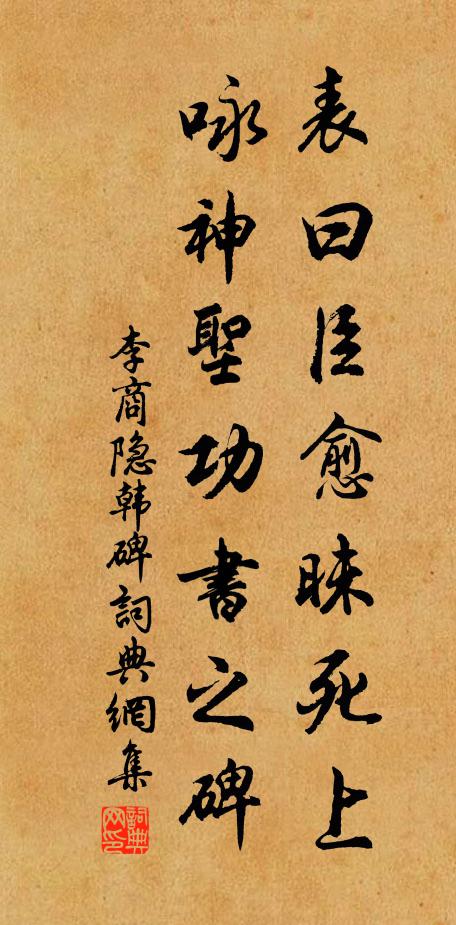 表曰臣愈昧死上
咏神聖功書之碑
李商隐韩碑詞典網集
詞典网印